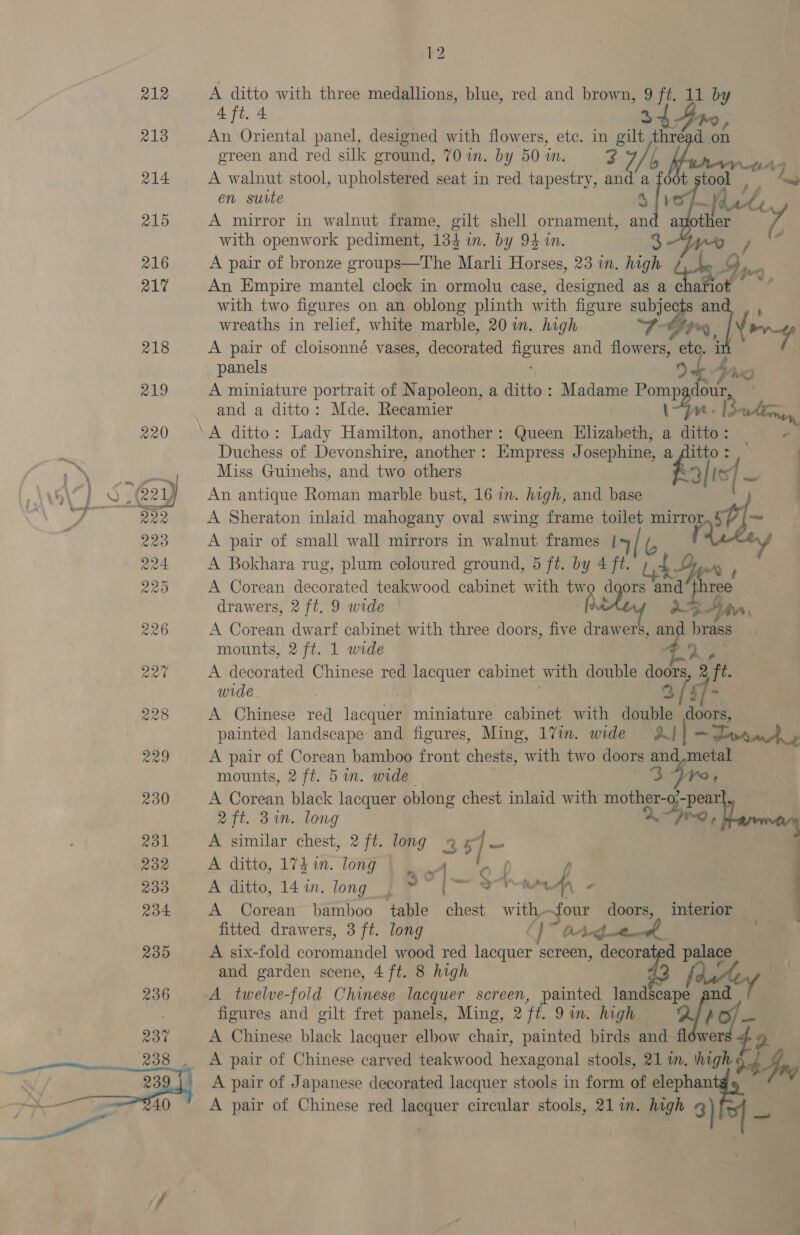 12
212 A ditto with three medallions, blue, red and brown, 9 ft. 11 by
4 ft. 4
213 An Oriental panel, designed with flowers, etc. in gilt thread on
green and red silk ground, 70 in. by 50 in.
214 A walnut stool, upholstered seat in red tapestry, and a foot stool
en suite
215 A mirror in walnut frame, gilt shell ornament, and another
with openwork pediment, 13½ in. by 9½ in.
216 A pair of bronze groups—The Marli Horses, 23 in. high
217 An Empire mantel clock in ormolu case, designed as a chariot
with two figures on an oblong plinth with figure subjects and
wreaths in relief, white marble, 20 in. high
218 A pair of cloisonné vases, decorated figures and flowers, etc. in
panels
219 A miniature portrait of Napoleon, a ditto: Madame Pompadour,
and a ditto: Mde. Recamier
220 A ditto: Lady Hamilton, another: Queen Elizabeth, a ditto:
Duchess of Devonshire, another: Empress Josephine, a ditto:
Miss Guinehs, and two others
221 An antique Roman marble bust, 16 in. high, and base
222 A Sheraton inlaid mahogany oval swing frame toilet mirror
223 A pair of small wall mirrors in walnut frames 17/6
224 A Bokhara rug, plum coloured ground, 5 ft. by 4 ft.
225 A Corean decorated teakwood cabinet with two doors and three
drawers, 2 ft. 9 wide
226 A Corean dwarf cabinet with three doors, five drawers, and brass
mounts, 2 ft. 1 wide
227 A decorated Chinese red lacquer cabinet with double doors, 2 ft.
wide
228 A Chinese red lacquer miniature cabinet with double doors,
painted landscape and figures, Ming, 17in. wide
229 A pair of Corean bamboo front chests, with two doors and metal
mounts, 2 ft. 5 in. wide
230 A Corean black lacquer oblong chest inlaid with mother-o'-pearl,
2 ft. 3 in. long
231 A similar chest, 2 ft. long
232 A ditto, 17½ in. long
233 A ditto, 14 in. long
234 A Corean bamboo table chest with four doors, interior
fitted drawers, 3 ft. long
235 A six-fold coromandel wood red lacquer screen, decorated palace
and garden scene, 4 ft. 8 high
236 A twelve-fold Chinese lacquer screen, painted landscape and
figures and gilt fret panels, Ming, 2 ft. 9 in. high
237 A Chinese black lacquer elbow chair, painted birds and flowers
238 A pair of Chinese carved teakwood hexagonal stools, 21 in. high
239 A pair of Japanese decorated lacquer stools in form of elephants
240 A pair of Chinese red lacquer circular stools, 21 in. high